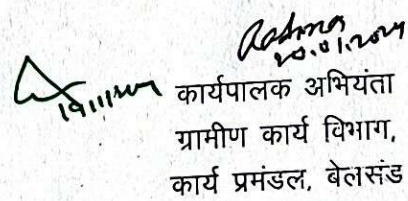 20.01.2024
कार्यपालक अभियंता
ग्रामीण कार्य विभाग,
कार्य प्रमंडल, बेलसंड